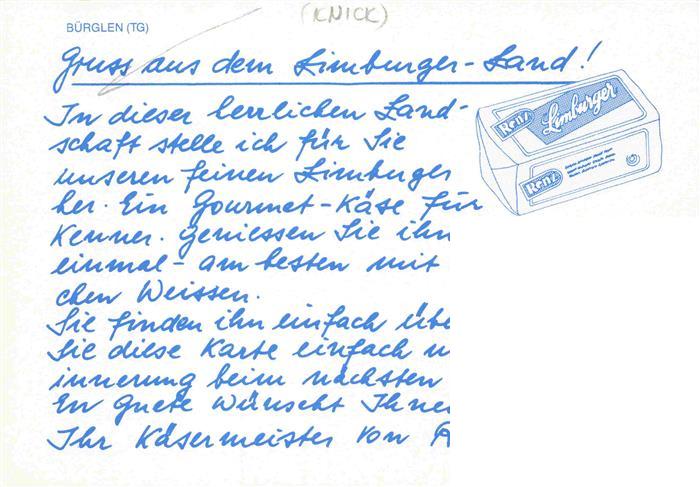 (KNICK)
BÜRGLEN (TG)
Gruss aus dem Limburger-Land!
In dieser herrlichen Land-
schaft stelle ich für Sie
unseren feinen Limburger
her. Ein Gourmet-Käse für
Kenner. Geniessen Sie ihn
einmal - am besten mit
chen Weissen.
Sie finden ihn einfach übe
Sie diese Karte einfach
innerung beim nächsten
En Guete wünscht Ihne
Ihr Käsermeister von
Renz
Limburger
Renz